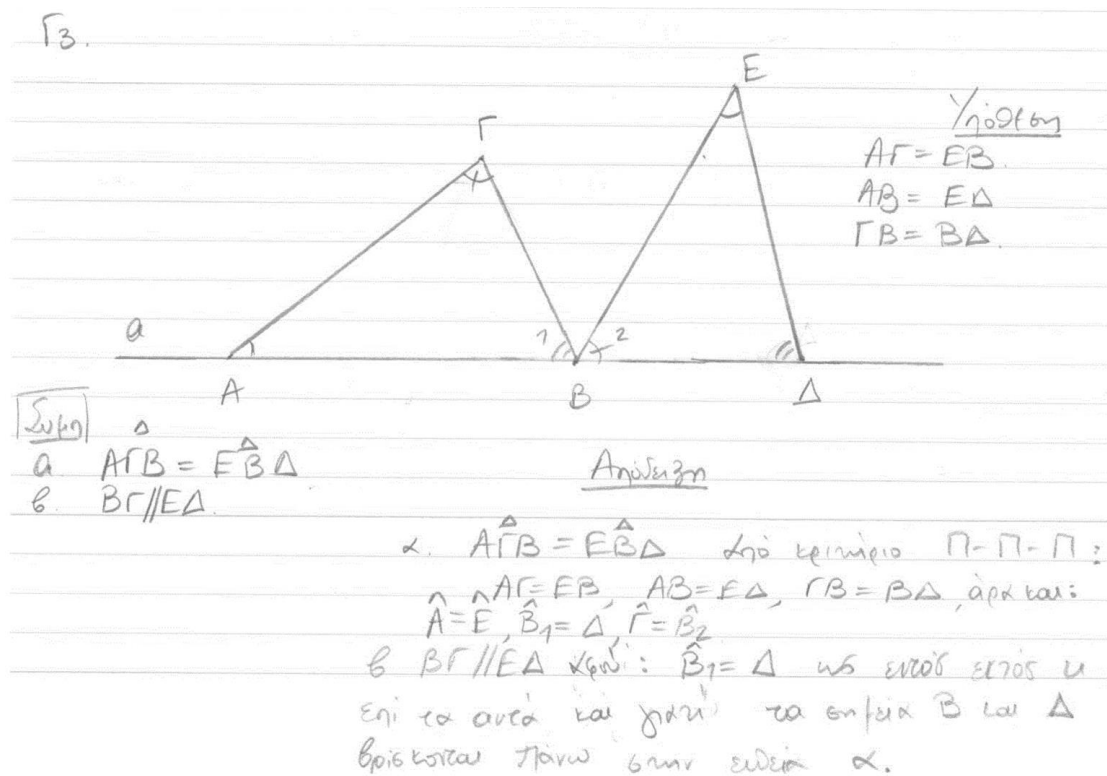 Γ3.
Ε
Γ
Υπόθεση
ΑΓ = ΕΒ.
ΑΒ = ΕΔ
ΓΒ = ΒΔ.
α
1 2
Α Β Δ
Συμπ
α ΑΓΒ = ΕΒΔ
β. ΒΓ//ΕΔ.
Απόδειξη
α. ΑΓΒ = ΕΒΔ από κριτήριο Π-Π-Π:
ΑΓ=ΕΒ, ΑΒ=ΕΔ, ΓΒ=ΒΔ, άρα και:
Â=Ê, B̂₁=Δ, Γ̂=B̂₂
β ΒΓ//ΕΔ αφού: B̂₁=Δ ως εντός εκτός κ
επί τα αυτά και γιατί τα σημεία Β και Δ
βρίσκονται πάνω στην ευθεία α.